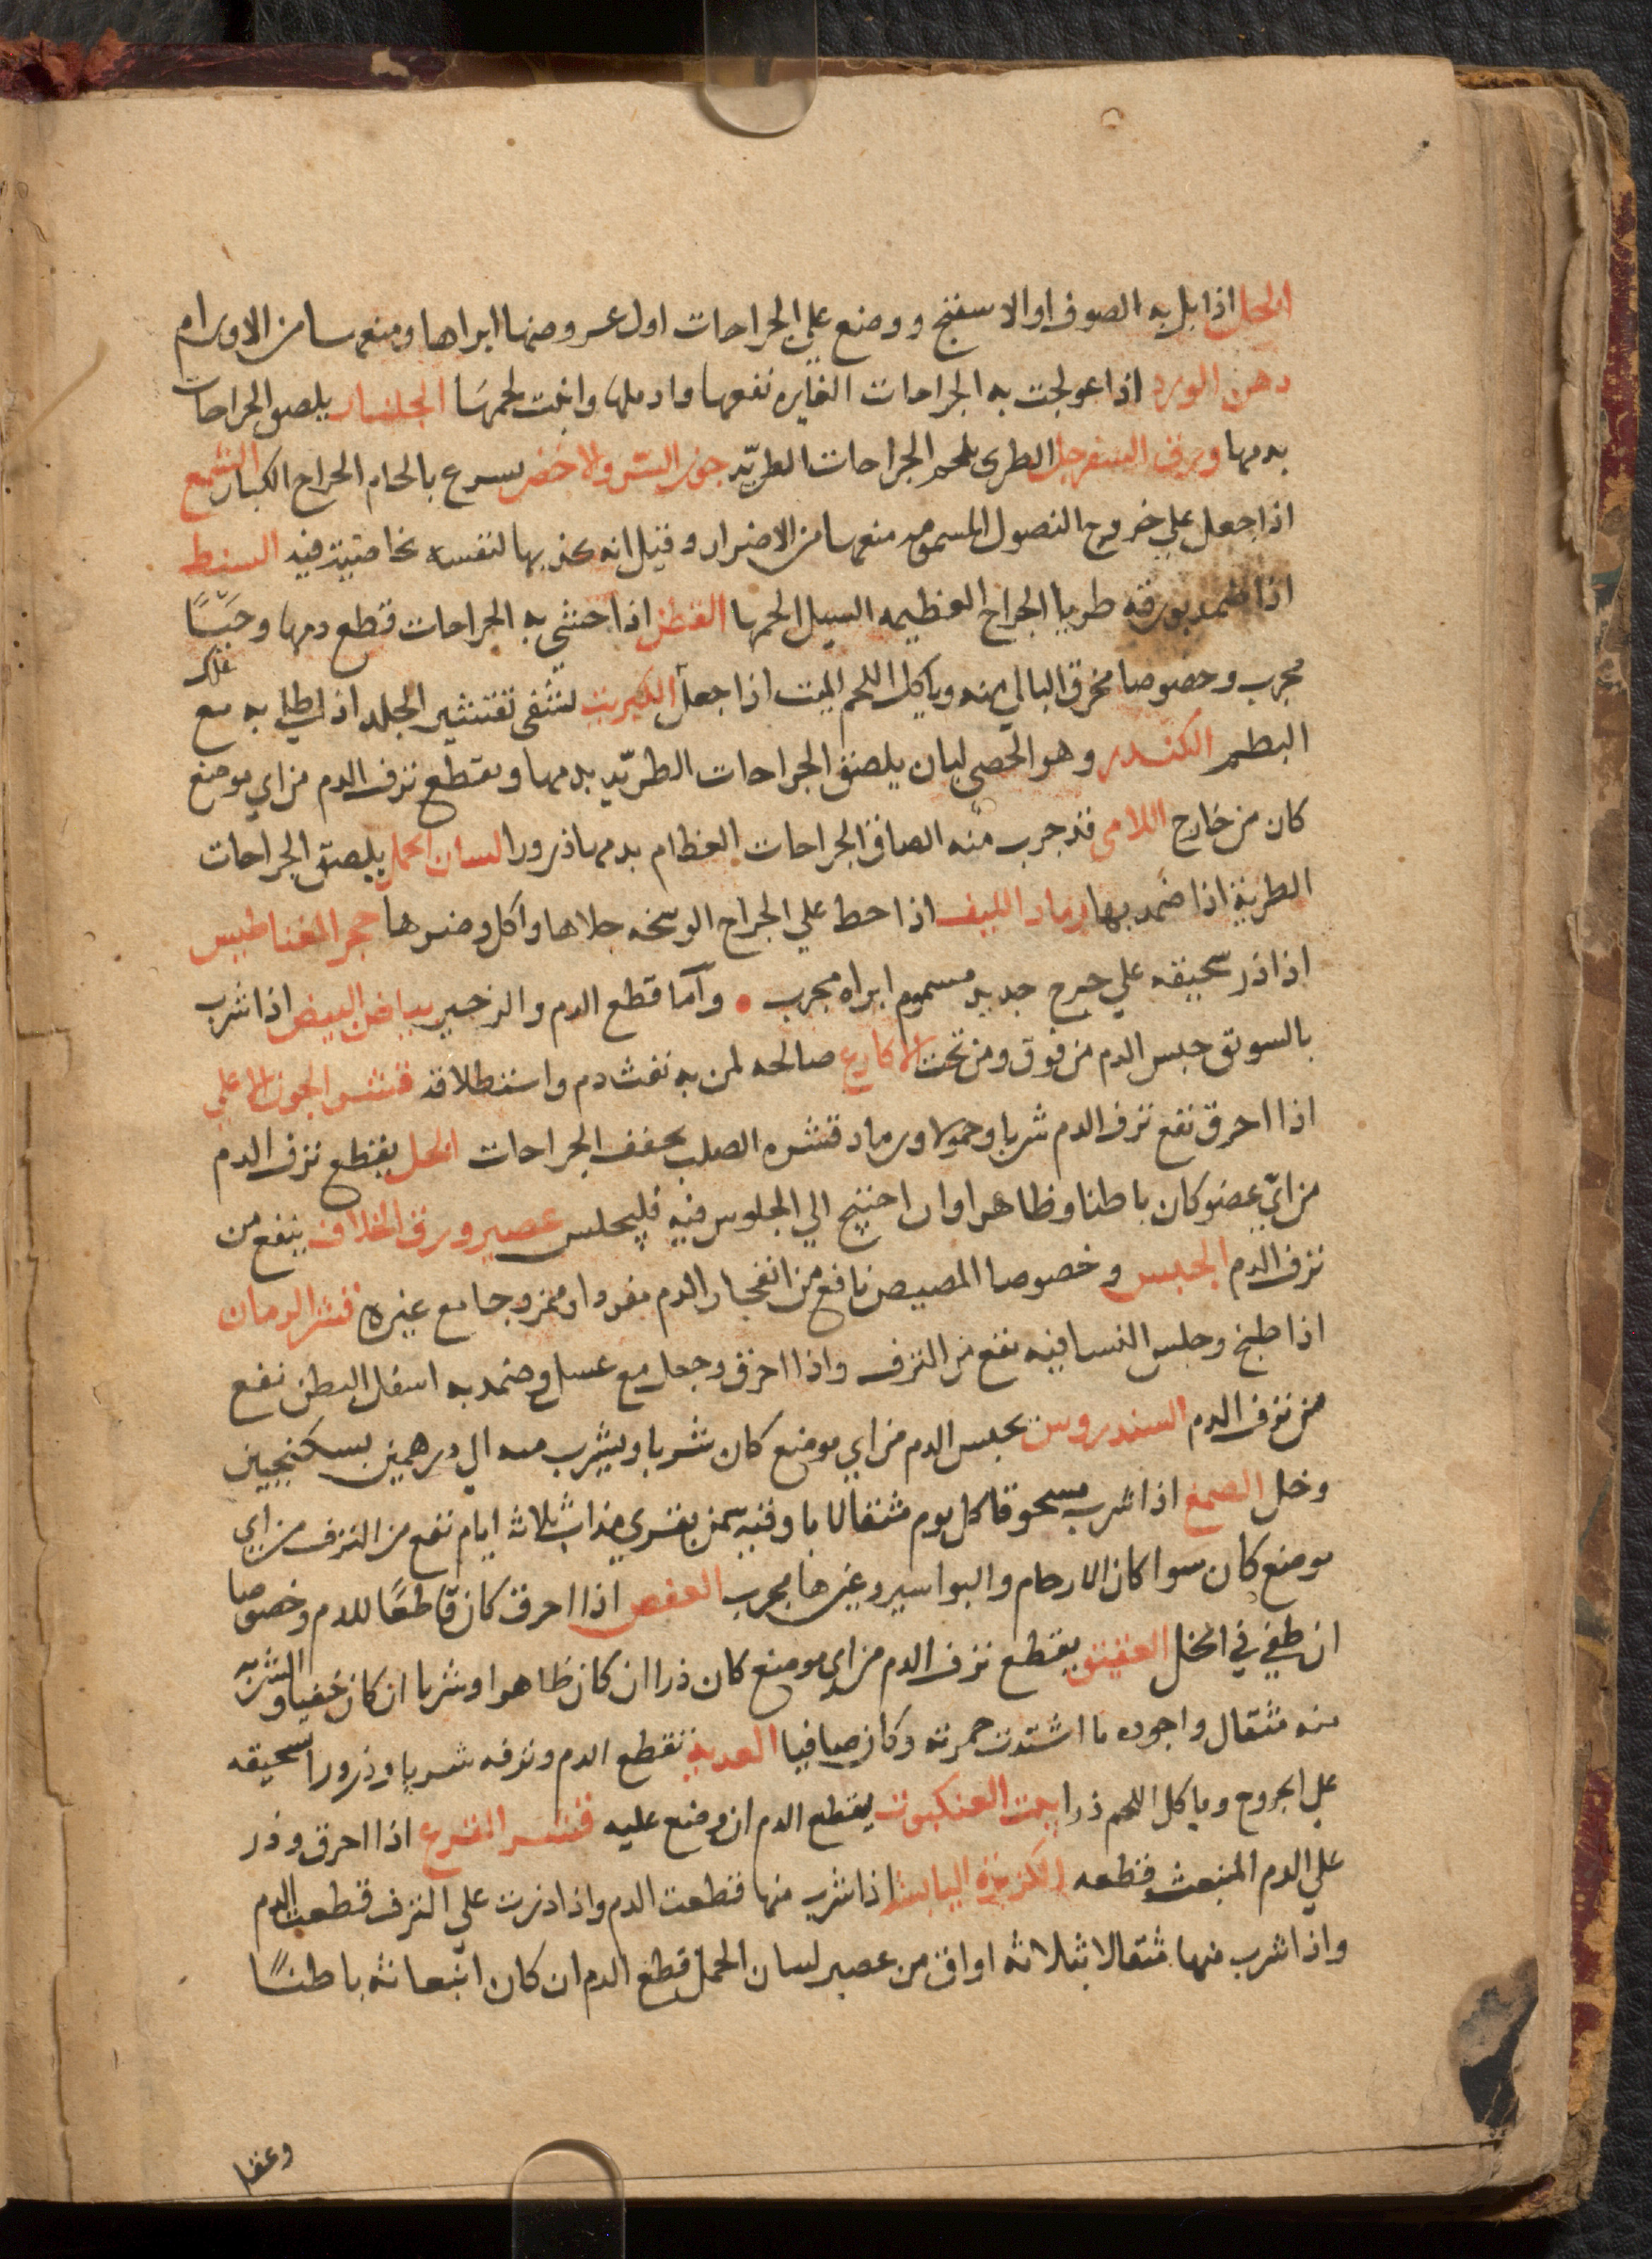 الخل اذا بل به الصوف او الاسفنج ووضع علي الجراحات اول عروضها ابراها ومنعها من الاورام
دهن الورد اذا عولجت به الجراحات الغايره نفعها وادملها وانبت لحمها الجلنار يلصق الجراحات
بدمها ورق السفرجل الطري يلحم الجراحات الطريّه جوز السرو الاخضر يسرع بالحام الجراح الكبار الشمع
اذا جعل علي خروج النصول المسمومه منعها من الاضرار وقيل انه يجذبها لنفسه بخاصيته فيه السنط
اذا ضمد بورقه طريا الجراح العظيمه السيل الحمها القطن اذا حشي به الجراحات قطع دمها وحيّا
مجرب وخصوصا محرق البالي منه وياكل اللحم الميت اذا جعل الكبريت لتشفي تقشير الجلد اذا طلي به مع علك
البطم الكندر وهو الحصي لبان يلصق الجراحات الطريّه بدمها ويقطع نزف الدم من اي موضع
كان من خارج اللامي قد جرب منه الصاق الجراحات العظام بدمها ذرورا لسان الحمل يلصق الجراحات
الطرية اذا ضمد بها رماد الليف اذا حط علي الجراح الوسخه جلاها واكل وضرها حجر المغناطيس
اذا ذر سحيقه علي جرح جديد مسموم ابراه مجرب • وآما قطع الدم والزحير بياض البيض اذا شرب
بالسويق حبس الدم من فوق ومن تحت الاكارع صالحه لمن به نفث دم واستطلاقه قشر الجوز الاعلي
اذا احرق نفع نزف الدم شربا وحمولا ورماد قشره الصلب يجفف الجراحات الخل يقطع نزف الدم
من ايّ عضو كان باطنا وظاهرا وان احتيج الي الجلوس فيه فليجلس عصير ورق الخلاف ينفع من
نزف الدم الجبس وخصوصا المصيص نافع من انفجار الدم مفردا وممزوجا مع غيره قشر الرمان
اذا طبخ وجلس النسا فيه نفع من النزف واذا احرق وجعل مع عسل وضمد به اسفل البطن نفع
من نزف الدم السندروس يحبس الدم من اي موضع كان شربا ويشرب منه الي درهمين بسكنجبين
وخل الصمغ اذا شرب مسحوقا كل يوم مثقالا باوقيه سمن بقري مذاب ثلاثه ايام نفع من النزف من اي
موضع كان سوا كان الارحام والبواسير وغيرها مجرب العفص اذا احرق كان قاطعًا للدم وخصوصا
ان طفي في الخل العقيق يقطع نزف الدم من اي موضع كان ذرا ان كان ظاهرا وشربا ان كان خفيا والشربه
منه مثقال واجوده ما اشتدت حمرته وكان صافيا العدبه تقطع الدم ونزفه شربا وذرورا سحيقه
علي الجروح وياكل اللحم ذرا بيت العنكبوت يقطع الدم ان وضع عليه قشر القرع اذا احرق وذر
علي الدم المنبعث قطعه الكزبرة اليابسة اذا شرب منها قطعت الدم واذا ذرت علي النزف قطعت الدم
واذا شرب منها مثقالا بثلاثه اواق من عصير لسان الحمل قطع الدم ان كان انبعاثه باطنًا